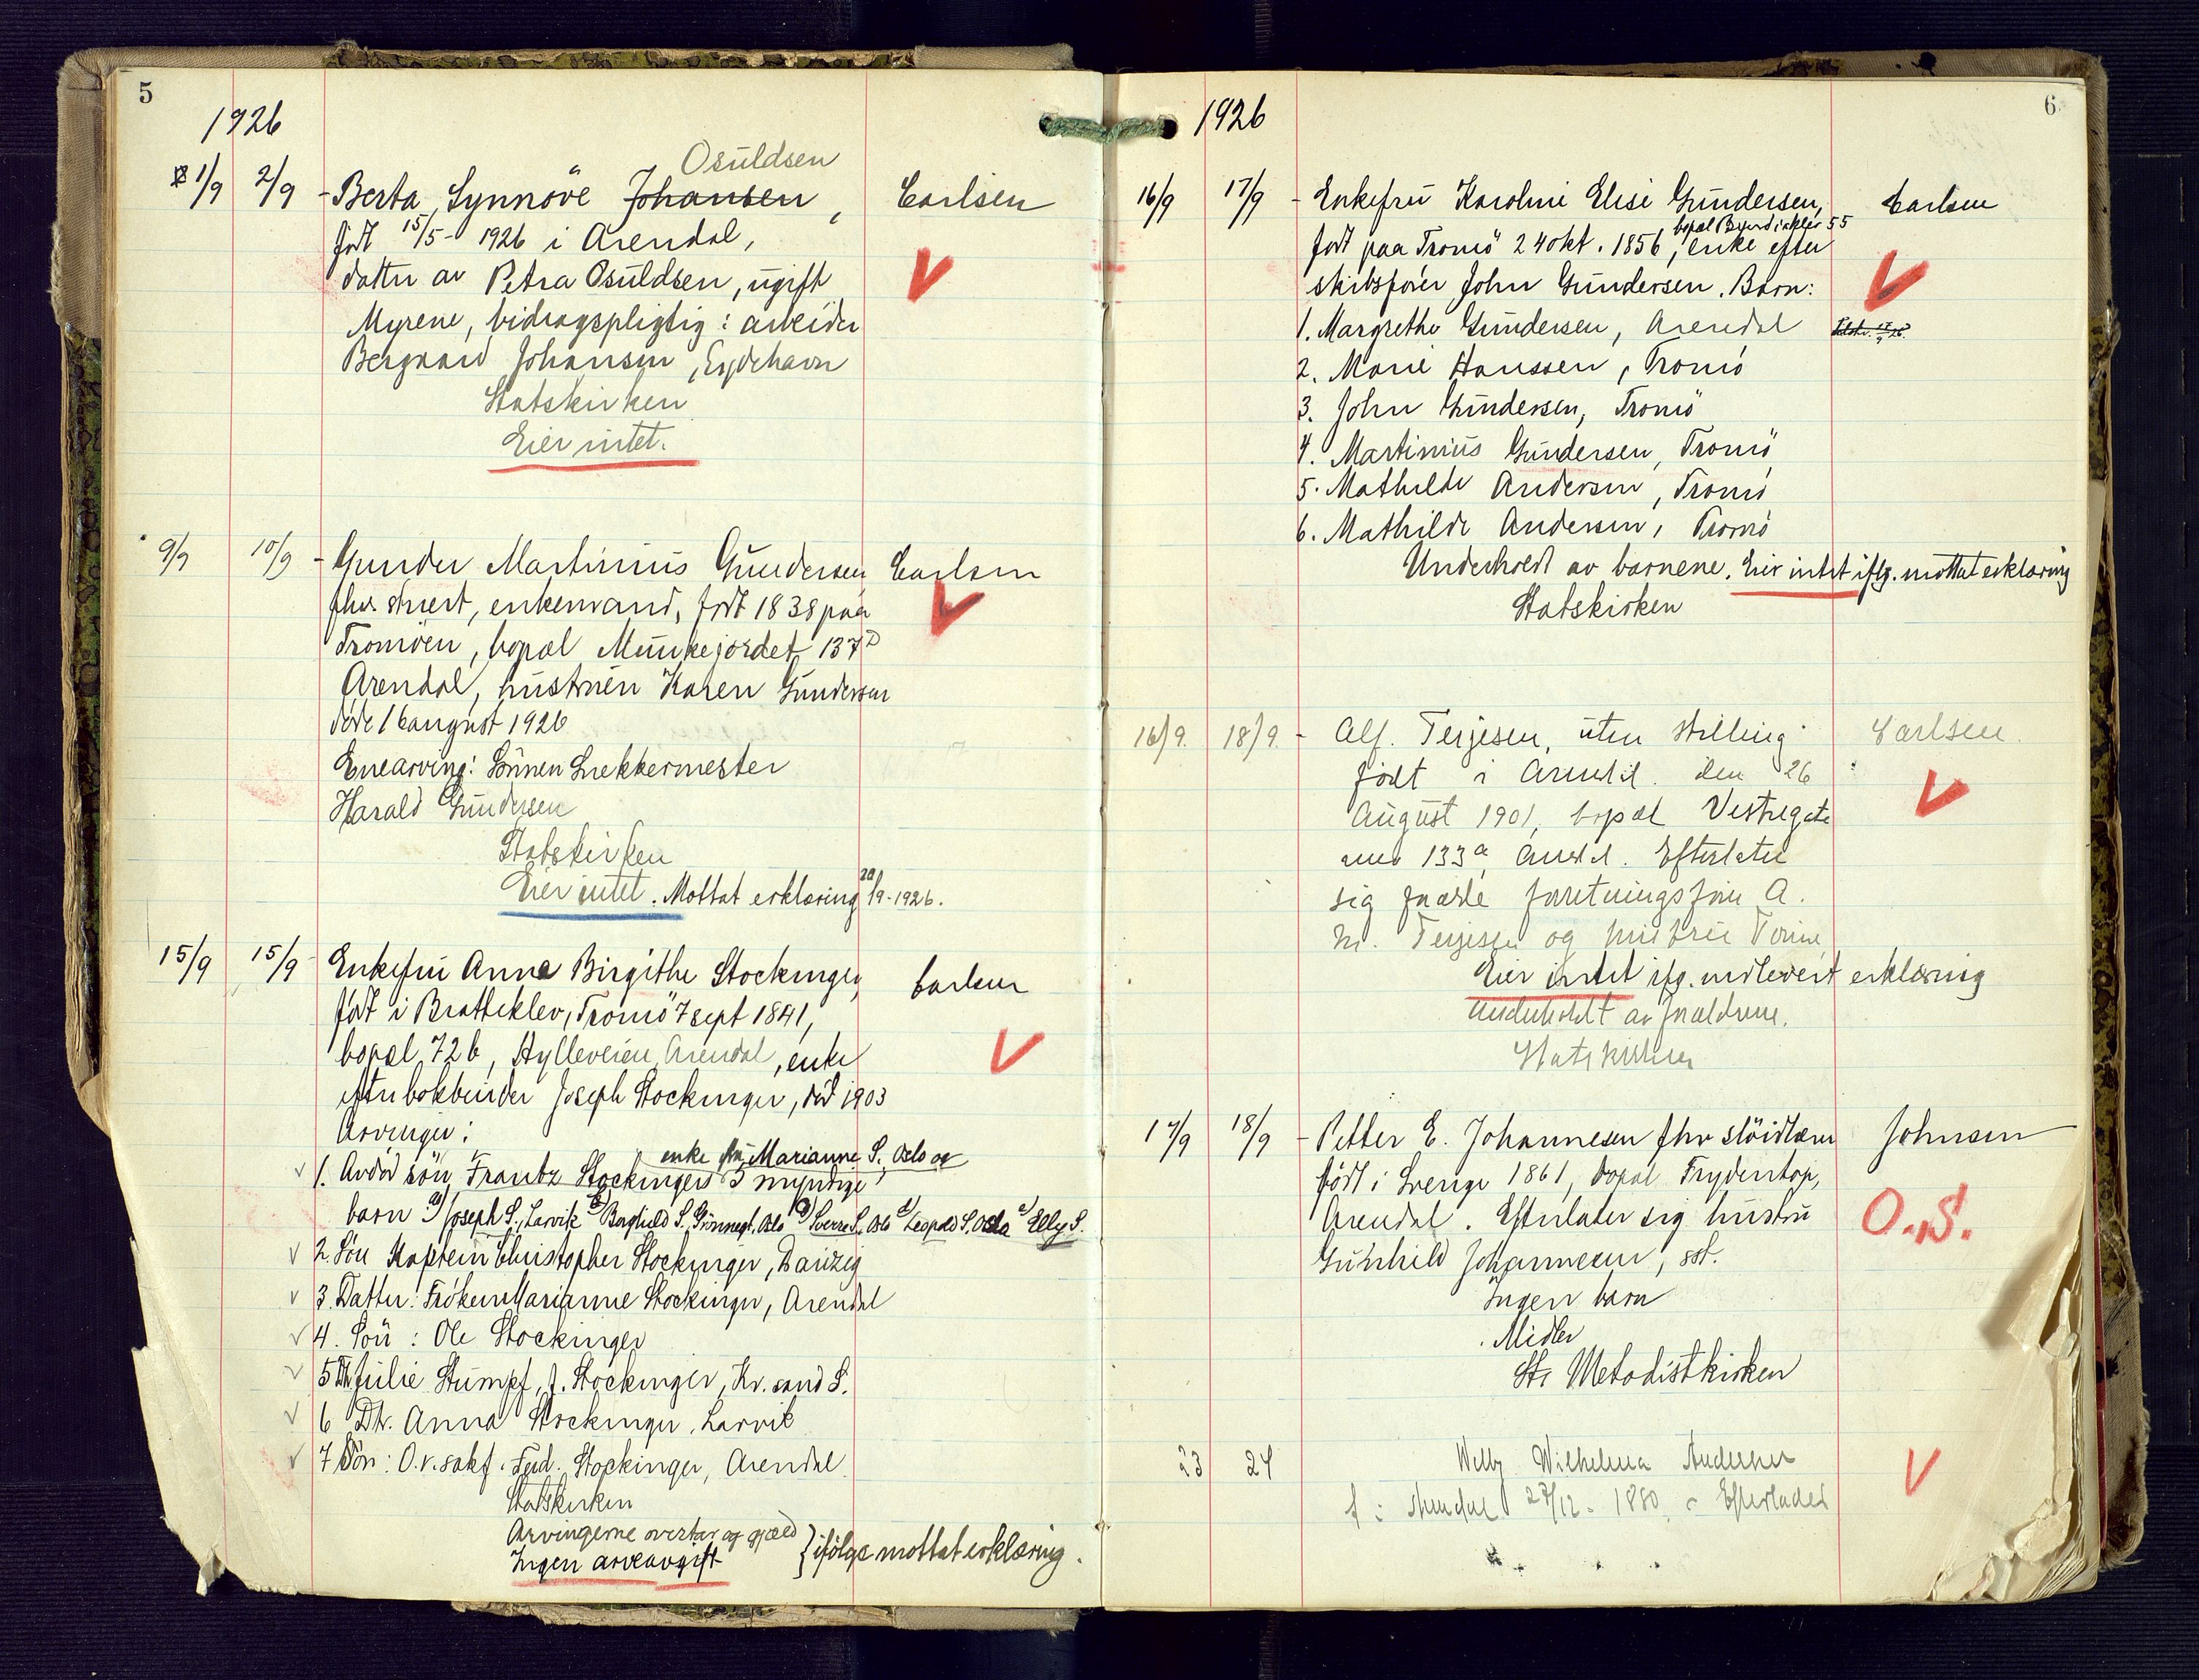 5
1926
1/9 2/9 - Berta Synnöve ~~Johansen~~, Osuldsen Carlsen
født 15/5 - 1926 i Arendal,
datter av Petra Osuldsen, ugift
Myrene, bidragspligtig: arbeider
Bergvard Johansen, Eydehavn
Statskirken
Eier intet.
9/9 10/9 - Gunder Martinius Gundersen Carlsen
fhv. stuert, enkemand, født 1838 paa
Tromöen, bopæl Munkejordet 137D
Arendal, hustruen Karen Gundersen
døde 16 august 1926
Enearving: Sönnen Snekkermester
Harald Gundersen
Statskirken
Eier intet. Mottat erklæring 20/9-1926.
15/9 15/9 - Enkefru Anna Birgithe Stockinger, Carlsen
født i Bratteklev, Tromö 7 sept 1841,
bopæl 72b, Hylleveien Arendal, enke
efter bokbinder Joseph Stockinger, död 1903
Arvinger:
enke fru Marianne S. Oslo og
1. Avdöd sön Frantz Stockingers 5 myndige
barn a) Joseph S., Larvik b) Borghild S. Grönnegt. Oslo c) Sverre S. Oslo d) Leopold S. Oslo e) Elly S.
2. Sön Kaptein Christopher Stockinger, Danzig
3. Datter: Fröken Marianne Stockinger, Arendal
4. Sön: Ole Stockinger
5 Dtr. Julie Stumpf, f. Stockinger, Kr. sand S.
6 Dtr. Anna Stockinger, Larvik
7 Sön: O.r.sakf. Ferd. Stockinger, Arendal
Statskirken
Arvingerne overtar og gjæld
Ingen arveavgift } ifölge mottat erklæring.
6
1926
16/9 17/9 - Enkefru Karoline Elise Gundersen, Carlsen
bopæl 55
født paa Tromö 24 okt. 1856, enke efter
skibsförer John Gundersen. Barn:
1. Margrethe Gundersen, Arendal
2. Marie Hanssen, Tromö
3. John Gundersen, Tromö
4. Martinius Gundersen, Tromö
5. Mathilde Andersen, Tromö
6. Mathilde Andersen, Tromö
Underholdt av barnene. Eier intet iflg. mottat erklæring
Statskirken
16/9. 18/9. - Alf. Terjesen, uten stilling Carlsen.
født i Arendal den 26
August 1901, bopæl Vestregate
133a Arendal. Efterlater
sig foræld forretningsförer A.
M. Terjesen og hustru
Eier intet iflg. indlevert erklæring
Underholdt av forældrene.
Statskirken
17/9 18/9 - Petter E. Johannesen fhv slöidlærer Johnsen
födt i Sverige 1861, bopæl Frydentop,
Arendal. Efterlater sig hustru O.S.
Gunhild Johannesen, sst.
Ingen barn
Midler
St. Metodistkirken
23 24 Welly Wilhelma Andersen
f: Arendal 27/12 - 1880. Efterlader